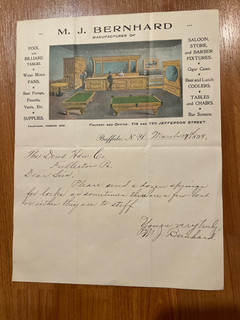 M. J. BERNHARD
MANUFACTURER OF
POOL
AND
BILLIARD
TABLES.
Water Motor
FANS.
Beer Pumps,
Faucets,
Vents, Etc.
SUPPLIES.
SALOON,
STORE,
AND BARBER
FIXTURES.
Cigar Cases.
Beer and Lunch
COOLERS.
TABLES
AND CHAIRS.
Bar Screens.
FACTORY AND OFFICE: 718 AND 720 JEFFERSON STREET.
Buffalo, N. Y.
The
Co.
Dear Sirs,
Please send a dozen springs
for locks as sometimes there are a few
or either they are to stiff.
Yours very truly,
M. J. Bernhard